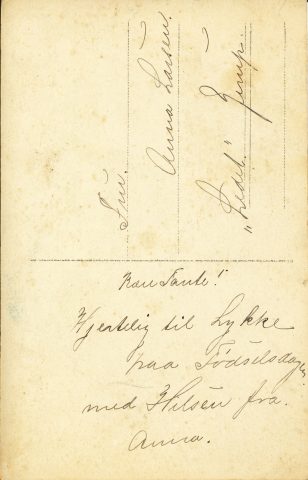 Fru.
Anna Larsen.
"Ledet." Gimp.
Kære Tante!
Hjertelig til Lykke
paa Födselsdagen
med Hilsen fra.
Anna.